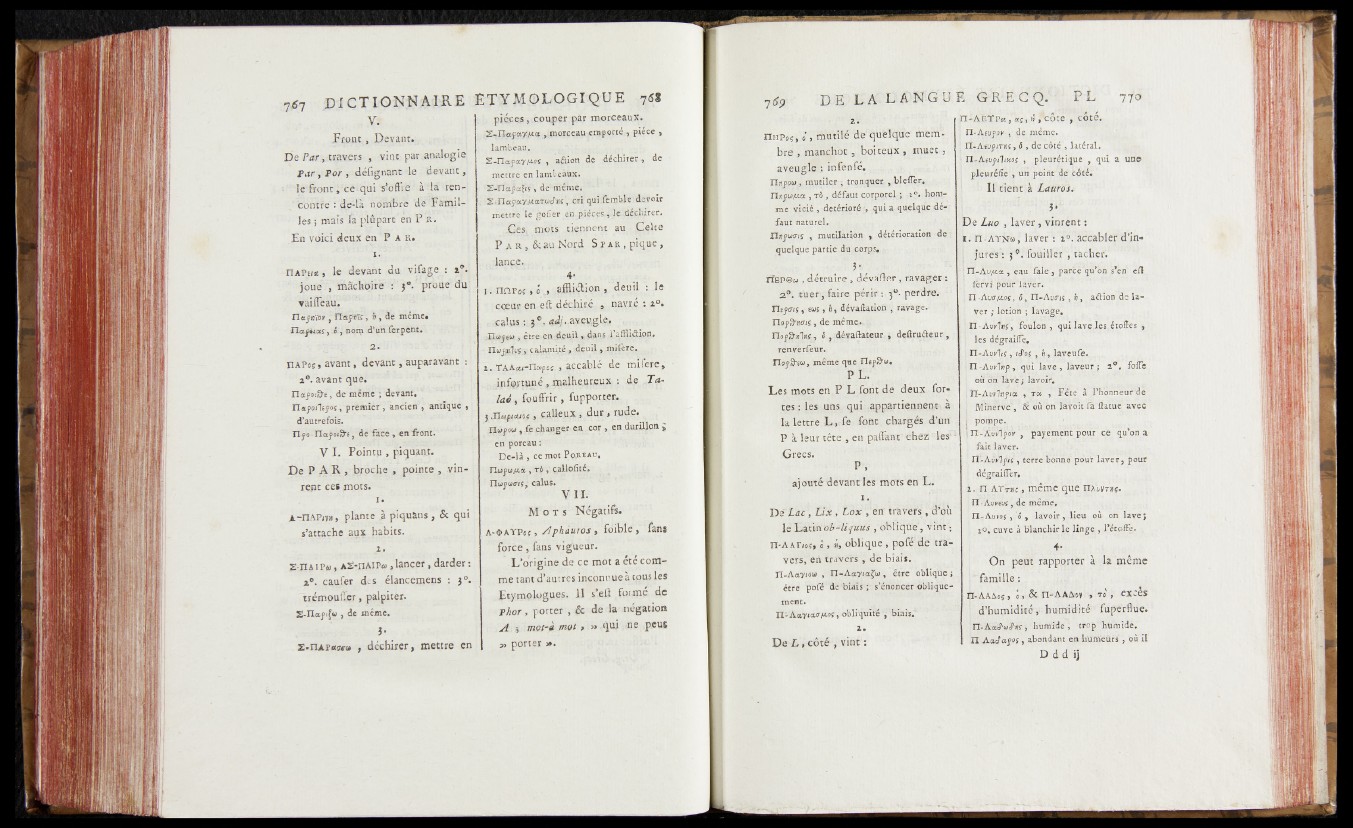 767 DICTIONNAIRE ÉTYMOLOGIQUE 768
V.
Front, Devant.
De Par, travers, vint par analogie
Par, Por, désignant le devant,
le front, ce qui s'offre à la ren-
contre : de-là nombre de Famil-
les ; mais la plûpart en P R.
En voici deux en P A R.
1.
ΠΑΡεια, le devant du visage : 2°.
joue, mâchoire : 3°. proue du
vaisseau.
Παρηϊον, Παρηΐς, ἡ, de même.
Παρειας, ὁ, nom d'un serpent.
2.
ΠΑΡος, avant, devant, auparavant :
2°. avant que.
Παροιθε, de même ; devant.
Παροιτερος, premier, ancien, antique,
d'autrefois.
Προ-Παροιθε, de face, en front.
V I. Pointu, piquant.
De P A R, broche, pointe, vin-
rent ces mots.
1.
Α-ΠΑΡινη, plante à piquans, & qui
s'attache aux habits.
2.
Σ-ΠΑΙΡω, ΑΣ-ΠΑΙΡω, lancer, darder :
2°. causer des élancemens : 3°.
trémousser, palpiter.
Σ-Παριζω, de même.
3.
Σ-ΠΑΡασσω, déchirer, mettre en
piéces, couper par morceaux.
Σ-Παραγμα, morceau emporté, piéce,
lambeau.
Σ-Παραγμος, action de déchirer, de
mettre en lambeaux.
Σ-Παραξις, de même.
Σ-Παραγματωδης, cri qui semble devoir
mettre le gosier en piéces, le déchirer.
Ces mots tiennent au Celte
P A R, & au Nord S P A R, pique,
lance.
4.
1. ΠΩΡος, ὁ, affliction, deuil : le
cœur en est déchiré, navré : 2°.
calus : 3°. adj. aveugle.
Πωρεω, être en deuil, dans l'affliction.
Πωρητυς, calamité, deuil, misère.
2. ΤΑΛαι-Πωρος, accablé de misere,
infortuné, malheureux : de Ta-
laó, souffrir, supporter.
3. Πωριαιος, calleux, dur, rude.
Πωροω, se changer en cor, en durillon ;
en poreau :
De-là, ce mot POREAU.
Πωρωμα, τὸ, callosité.
Πωρωσις, calus.
V I I.
M O T S Négatifs.
Α-ΦΑΥΡος, Aphauros, foible, sans
force, sans vigueur.
L'origine de ce mot a été com-
me tant d'autres inconnue à tous les
Etymologues. Il s'est formé de
Phor, porter, & de la négation
A ; mot-à mot, » qui ne peus
» porter ».
769 DE LA LANGUE GRECQ. PL 770
2.
ΠΗΡος, ὁ, mutilé de quelque mem-
bre, manchot, boiteux, muet,
aveugle : insensé.
Πηροω, mutiler ; tronquer, blesser.
Πηρωμα, τὸ, défaut corporel ; 2°. hom-
me vicié, détérioré, qui a quelque dé-
faut naturel.
Πηρωσις, mutilation, détérioration de
quelque partie du corps.
3.
ΠΕΡΘω, détruire, dévaster, ravager :
2°. tuer, faire périr : 3°. perdre.
Περσις, εως, ἡ, dévastation, ravage.
Πορθησις, de même.
Πορθητης, ὁ, dévastateur, destructeur,
renverseur.
Πορθεω, même que Περθω.
P L.
Les mots en P L sont de deux sor-
tes : les uns qui appartiennent à
la lettre L, se sont chargés d'un
P à leur tête, en passant chez les
Grecs.
P,
ajouté devant les mots en L.
1.
De Lac, Lix, Lox, en travers, d'où
le Latin ob-liquus, oblique, vint ;
Π-ΛΑΓιος, ὁ, ἡ, oblique, posé de tra-
vers, en travers, de biais.
Π-Λαγιοω, Π-Λαγιαζω, être oblique ;
être posé de biais ; s'énoncer oblique-
ment.
Π-Λαγιασμος, obliquité, biais.
2.
De L, côté, vint :
Π-ΛΕΥΡα, ας, ἡ, côte, côté.
Π-Λευρον, de même.
Π-Λευριτης, ὁ, de côté, latéral.
Π-Λευριτικος, pleurétique, qui a une
pleurésie, un point de côté.
Il tient à Lauros.
3.
De Luo, laver, vinrent :
1. Π-ΛΥΝω, laver : 2°. accabler d'in-
jures : 3°. souiller, tacher.
Π-Λυμα, eau sale, parce qu'on s'en est
servi pour laver.
Π-Λυσμος, ὁ, Π-Λυσις, ἡ, action de la-
ver ; lotion ; lavage.
Π-Λυντης, foulon, qui lave les étoffes,
les dégraisse.
Π-Λυντις, ιδος, ἡ, laveuse.
Π-Λυντηρ, qui lave, laveur ; 2°. fosse
où on lave ; lavoir.
Π-Λυντηρια, τα, Féte à l'honneur de
Minerve, & où on lavoit sa statue avec
pompe.
Π-Λυντρον, payement pour ce qu'on a
fait laver.
Π-Λυντρις, terre bonne pour laver, pour
dégraisser.
2. Π-ΛΥΤης, même que Πλυντης.
Π-Λυνευς, de même.
Π-Λυνος, ὁ, lavoir, lieu où on lave ;
2°. cuve à blanchir le linge, l'étoffe.
4.
On peut rapporter à la même
famille :
Π-ΛΑΔος, ὁ, & Π-ΛΑΔον, τὸ, excès
d'humidité, humidité superflue.
Π-Λαδωδης, humide, trop humide.
Π-Λαδαρος, abondant en humeurs, où il
D d d ij